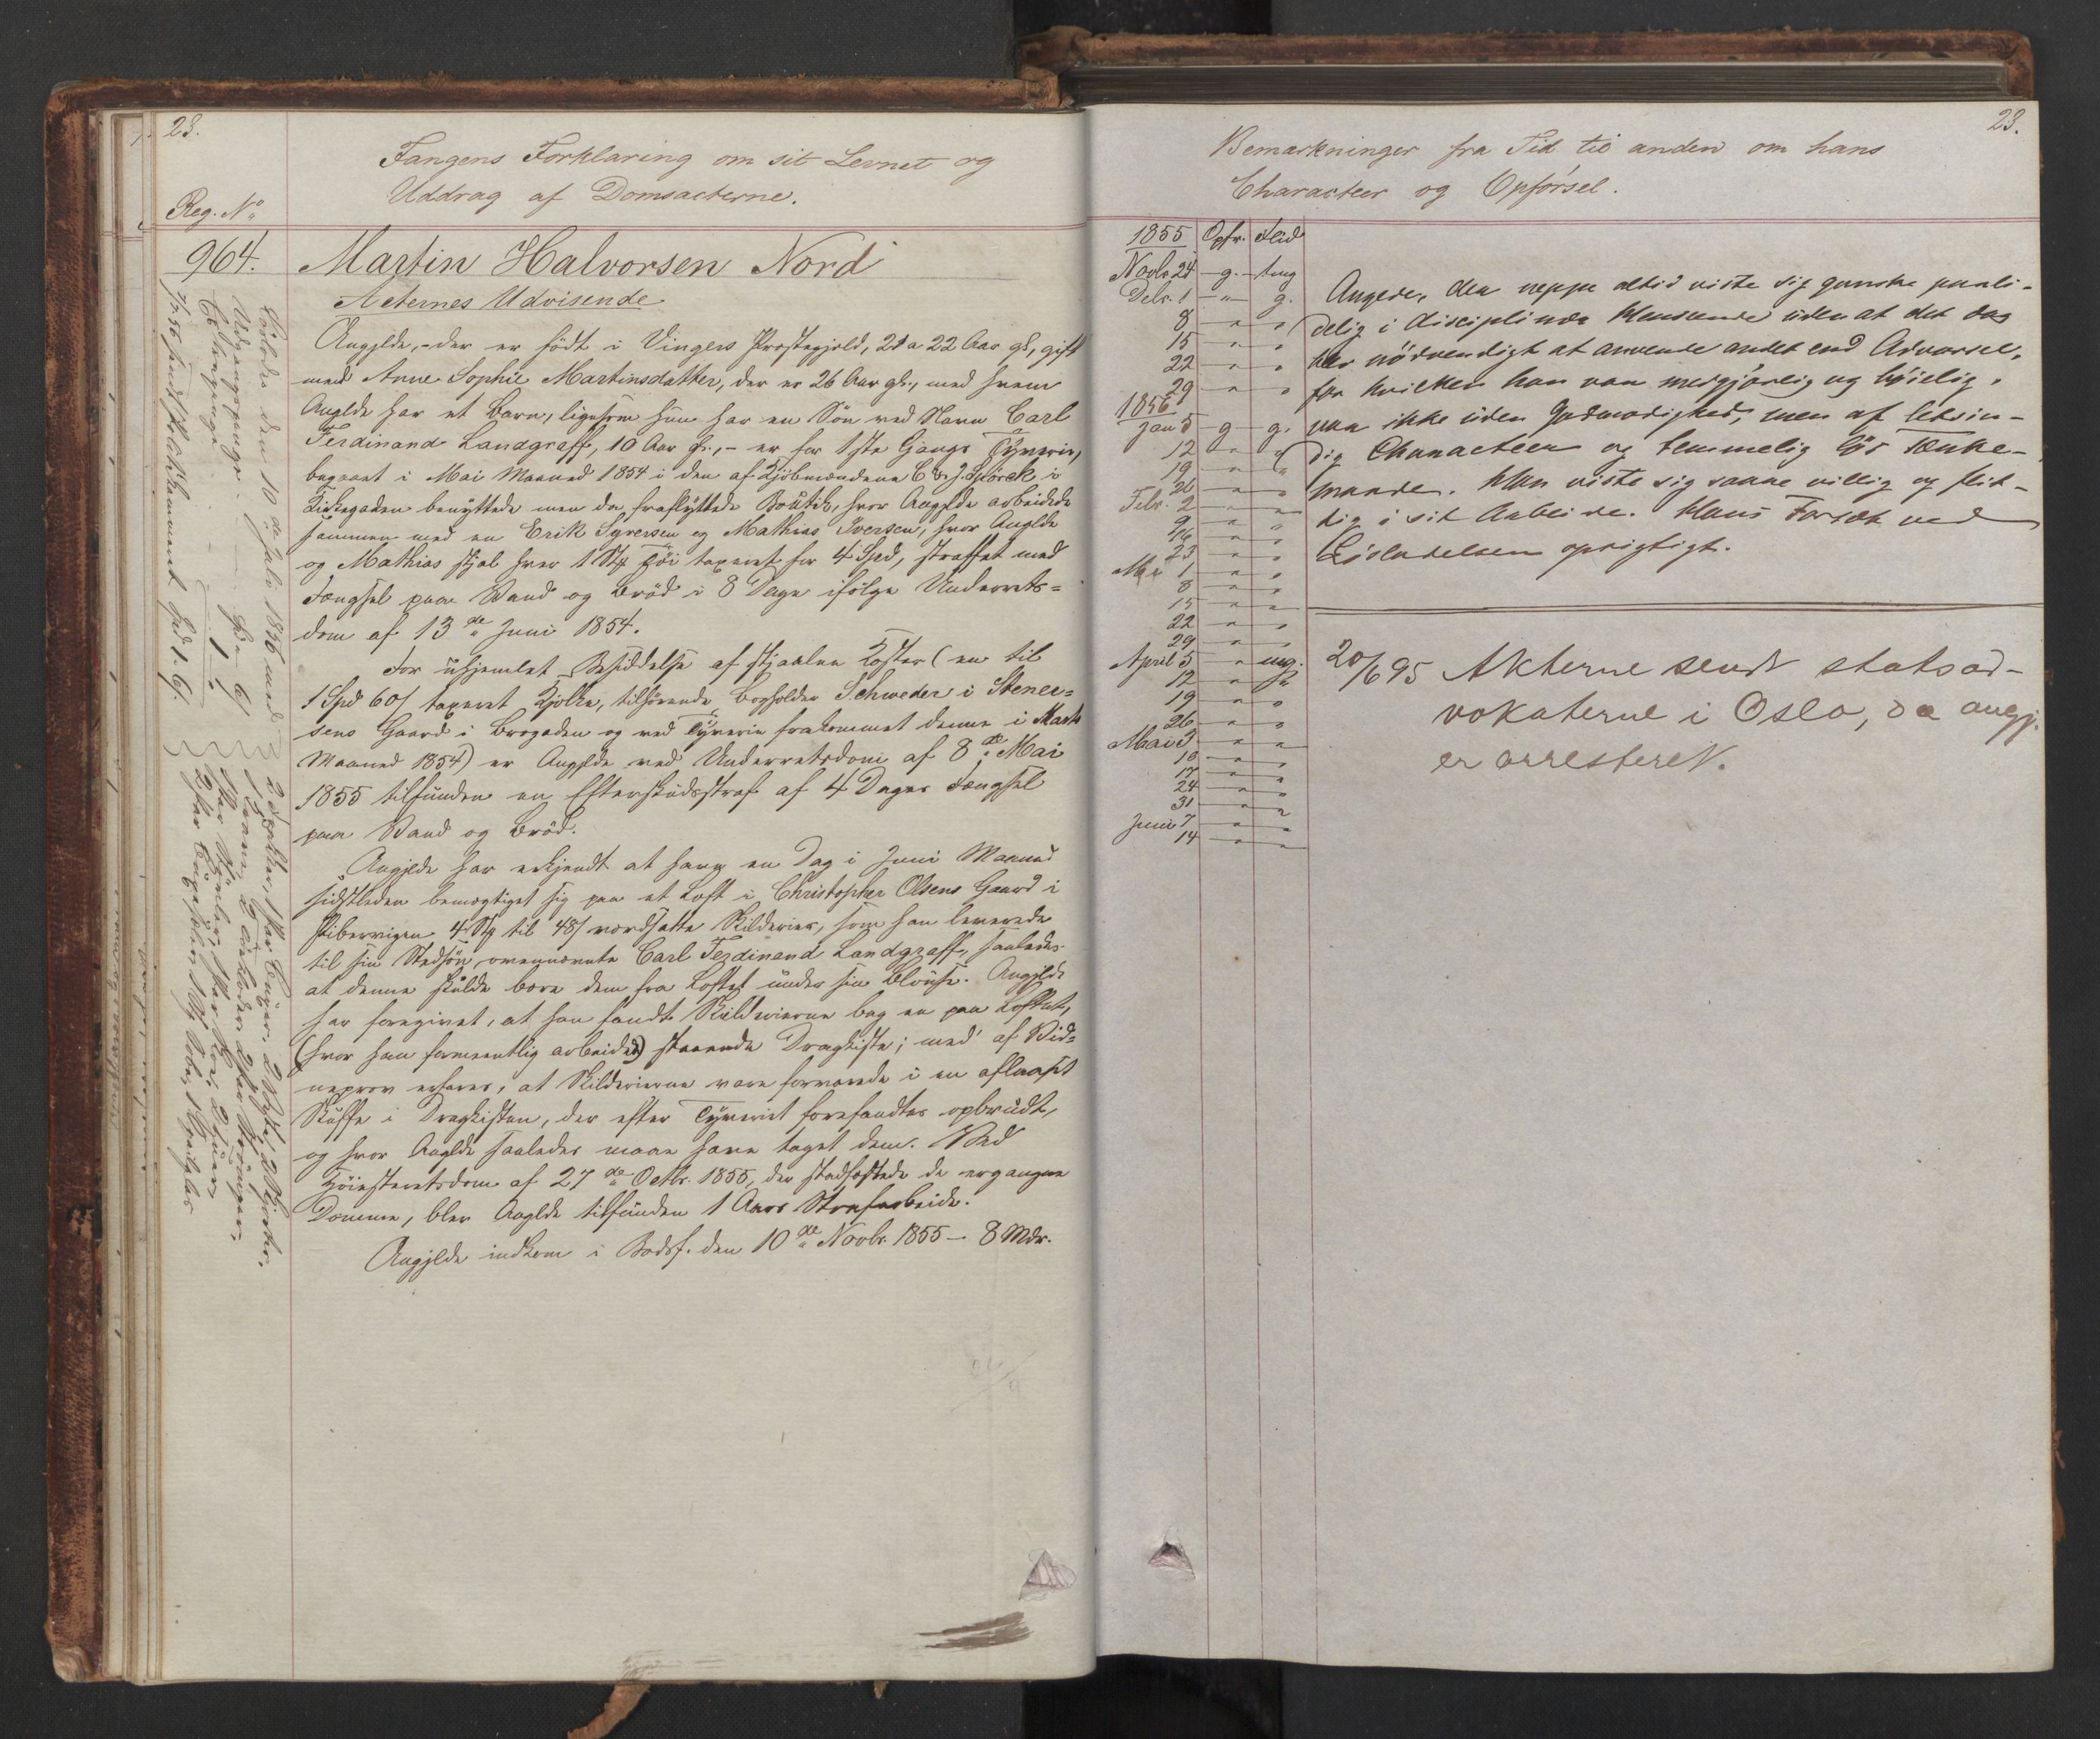 23.
Fangens Forklaring om sit Levnet og
Uddrag af Domsacterne.
Reg. No
964.
Martin Halvorsen Nord
Acternes Udvisende
Angjldte, der er født i Vingers Præstegjeld, 21 a 22 Aar gl., gift
med Anne Sophie Martinsdatter, der er 26 Aar gl., med hvem
Angldte har et Barn, ligesom hun har en Søn ved Navn Carl
Ferdinand Landgraff, 10 Aar gl., – er for 1ste Gangs Tyveri,
begaaet i Mai Maaned 1854 i den af Kjøbmændene
Kirkegaden benyttede men da fraflyttede Boutik, hvor Angjldte arbeidede
sammen med en Erik Syversen og Mathias Iversen, hvor Angldte
og Mathias stjal hver 1 Stk Tøi taxeret for 4 Spd, straffet med
Fængsel paa Vand og Brød i 8 Dage ifølge Underrets=
dom af 13de Juni 1854.
For uhjemlet Besiddelse af stjaalne Koster (en til
1 Spd 60 s taxeret Kjole, tilhørende Bogholder Schweder i Stener=
sens Gaard i Brogaden og ved Tyveri frakommet denne i Marts
Maaned 1854) er Angjldte ved Underretsdom af 8de Mai
1855 tilfunden en Efterskudsstraf af 4 Dages Fængsel
paa Vand og Brød.
Angjldte har erkjendt at have en Dag i Juni Maaned
sidstleden bemægtiget sig paa et Loft i Christopher Olsens Gaard i
Pibervigen 4 Stk til 48 s værdsatte Skilderier, som han leverede
til sin Stedsøn, ovennævnte Carl Ferdinand Landgraff, saaledes
at denne skulde bære dem fra Loftet under sin Blouse. Angjldte
har foregivet, at han fandt Skilderierne bag en paa Loftet,
(hvor han formeentlig arbeidede) staaende Dragkiste; med af Vid=
neprov erfares, at Skilderierne vare forvarede i en aflaaset
Skuffe i Dragkisten, der efter Tyveriet forefandtes opbrudt,
og hvor Angldte saaledes maae have taget dem. Ved
Høiesteretsdom af 27de Octbr. 1855, der stadfæstede de ergangne
Domme, blev Angldte tilfunden 1 Aars Strafarbeide.
Angjldte indkom i Bodsf. den 10de Novbr. 1855 – 8 Mdr.
Løslodes den 10de Juli 1856 med
Udgangspenge
23.
Bemærkninger fra Tid til anden om hans
Characteer og Opførsel.
1855 Opfr. Flid
Novbr 24 g. tmg
Debr. 1 " g.
8 " "
15 " "
22 " "
29 " "
1856
Jan 5 g g.
12 " "
19 " "
26 " "
Febr. 2 " "
9 " "
16 " "
23 " "
Mts 1 " "
8 " "
15 " "
22 " "
29 " "
April 5 " mg.
12 "
19 " "
26 " "
Mai 3 " "
10 " "
17 " "
24 " "
31 " "
Juni 7 " "
14 " "
Angrede, den neppe altid viste sig ganske paali-
delig i disciplinær Henseende uden at det dog
blev nødvendigt at anvende andet end Advarsel,
for hvilken han var medgjørlig og bøielig,
var ikke uden Godmodighed, men af letsin-
dig Characteer og temmelig løs Tænke-
maade. Han viste sig saare villig og flit-
tig i sit Arbeide. Hans Forsæt ved
Løsladelsen oprigtigt.
20/6 95 Akterne sendt statsad-
vokaterne i Oslo, da angj.
er arresteret.